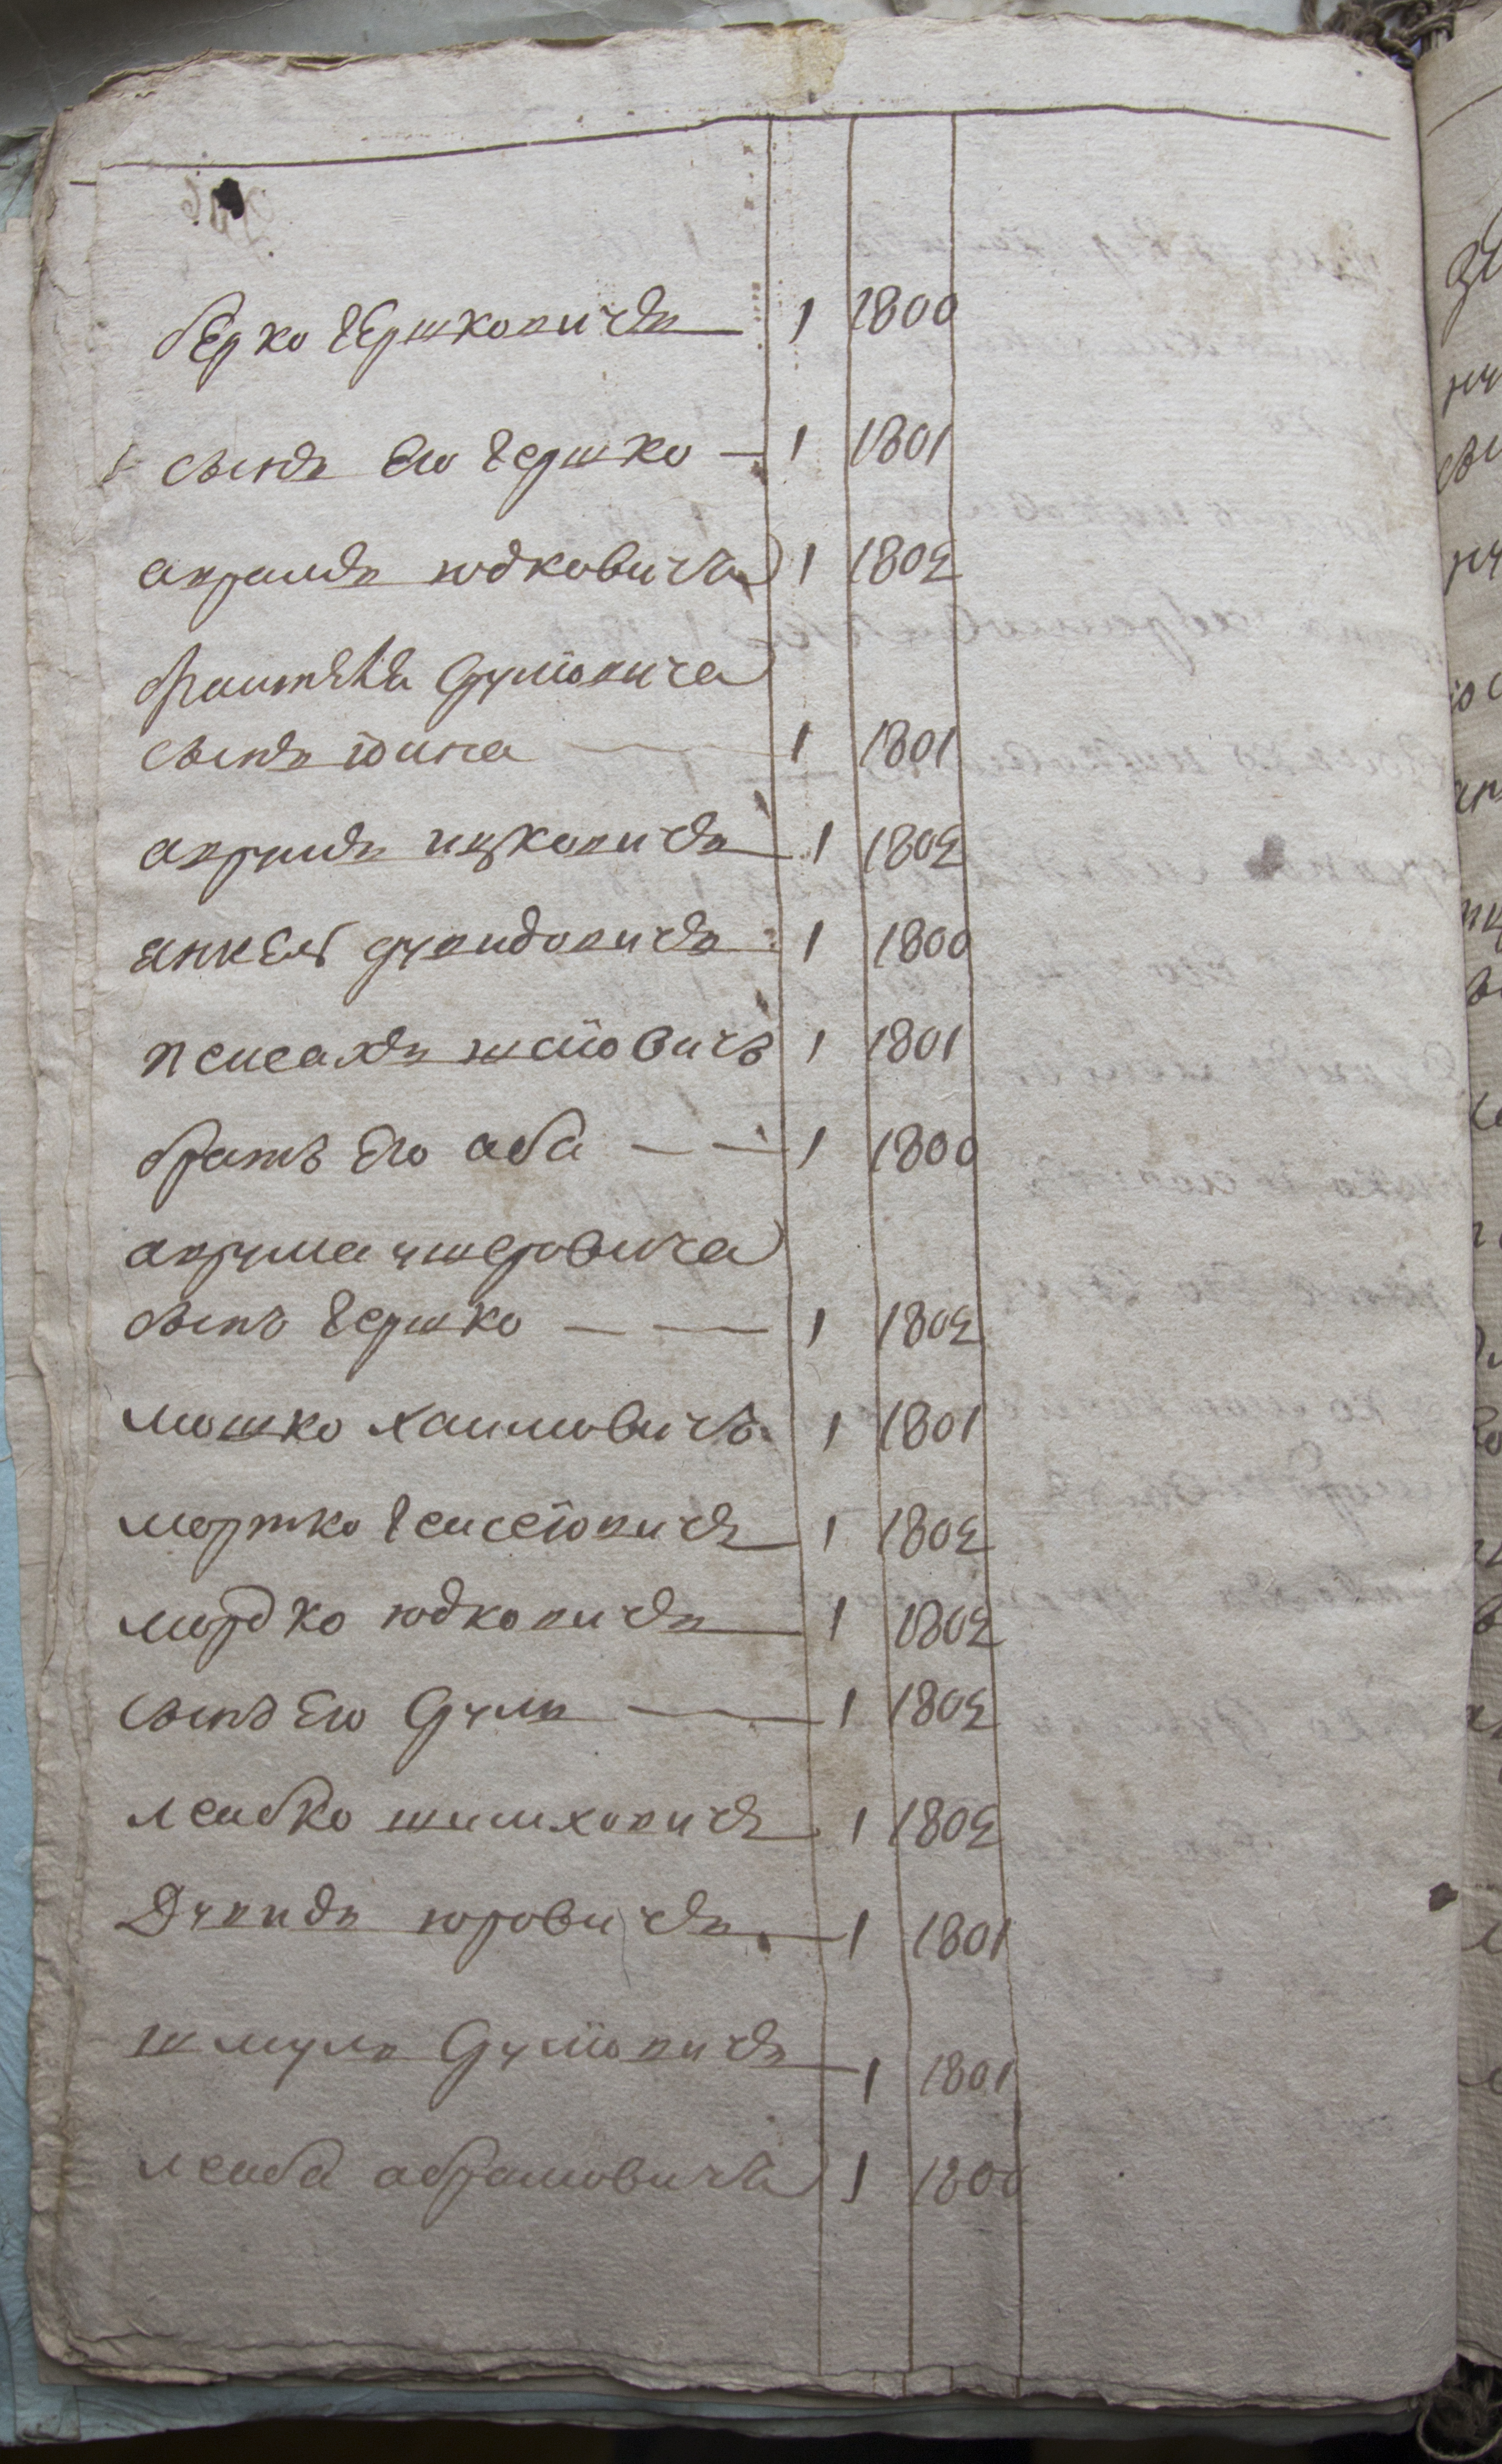 берко гершковичъ 1 1800
сынъ его гершко 1 1801
аврамъ юдковичъ 1 1802
сруліовича
сынъ іона 1 1801
аврамъ ицковичъ 1 1802
янкель давидовичъ 1 1800
пейсахъ 1 1801
братъ его аба 1 1800
аврама ушеровича
сынъ гершко 1 1802
мошко хаимовичъ 1 1801
мортко 1 1802
мордко юдковичъ 1 1802
сынъ его сруль 1 1802
лейбко шимховичъ 1 1802
Давидъ юровичъ 1 1801
шмуль сруліовичъ 1 1801
лейба абрамовичъ 1 1800